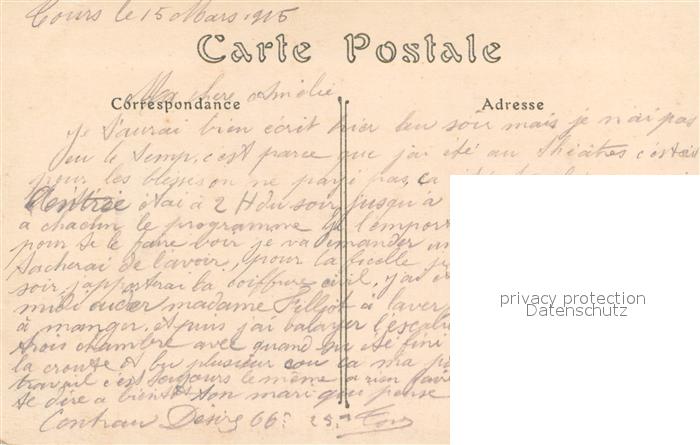 Tours le 15 Mars 1915
Carte Postale
Ma chere Amélie
Correspondance
Adresse
je t'aurai bien écrit hier leu soir mais je n'ai pas
eu le temp, c'est parce que j'ai été au théâtres c'etait
pour les blessés on ne payé pas, ca
l'entrée étai à 2 H du soir jusqu'à
a chacun le programme je l'emport
pour te le faire voir je va demander un
tacherai de l'avoir, pour la ficelle je
soir j'apportrai la coiffure civil, j'ai
midi aider madame Filliot à laver
à manger, et puis j'ai balayer l'escalie
trois chambre avec quand j'ai été fini
la croute et bu plusieur cou ca ma
travail c'est toujours le même a rien faire
te dire a bientôt ton mari qui pense
Contrau Désiré 66e 25e Tours
privacy protection
Datenschutz